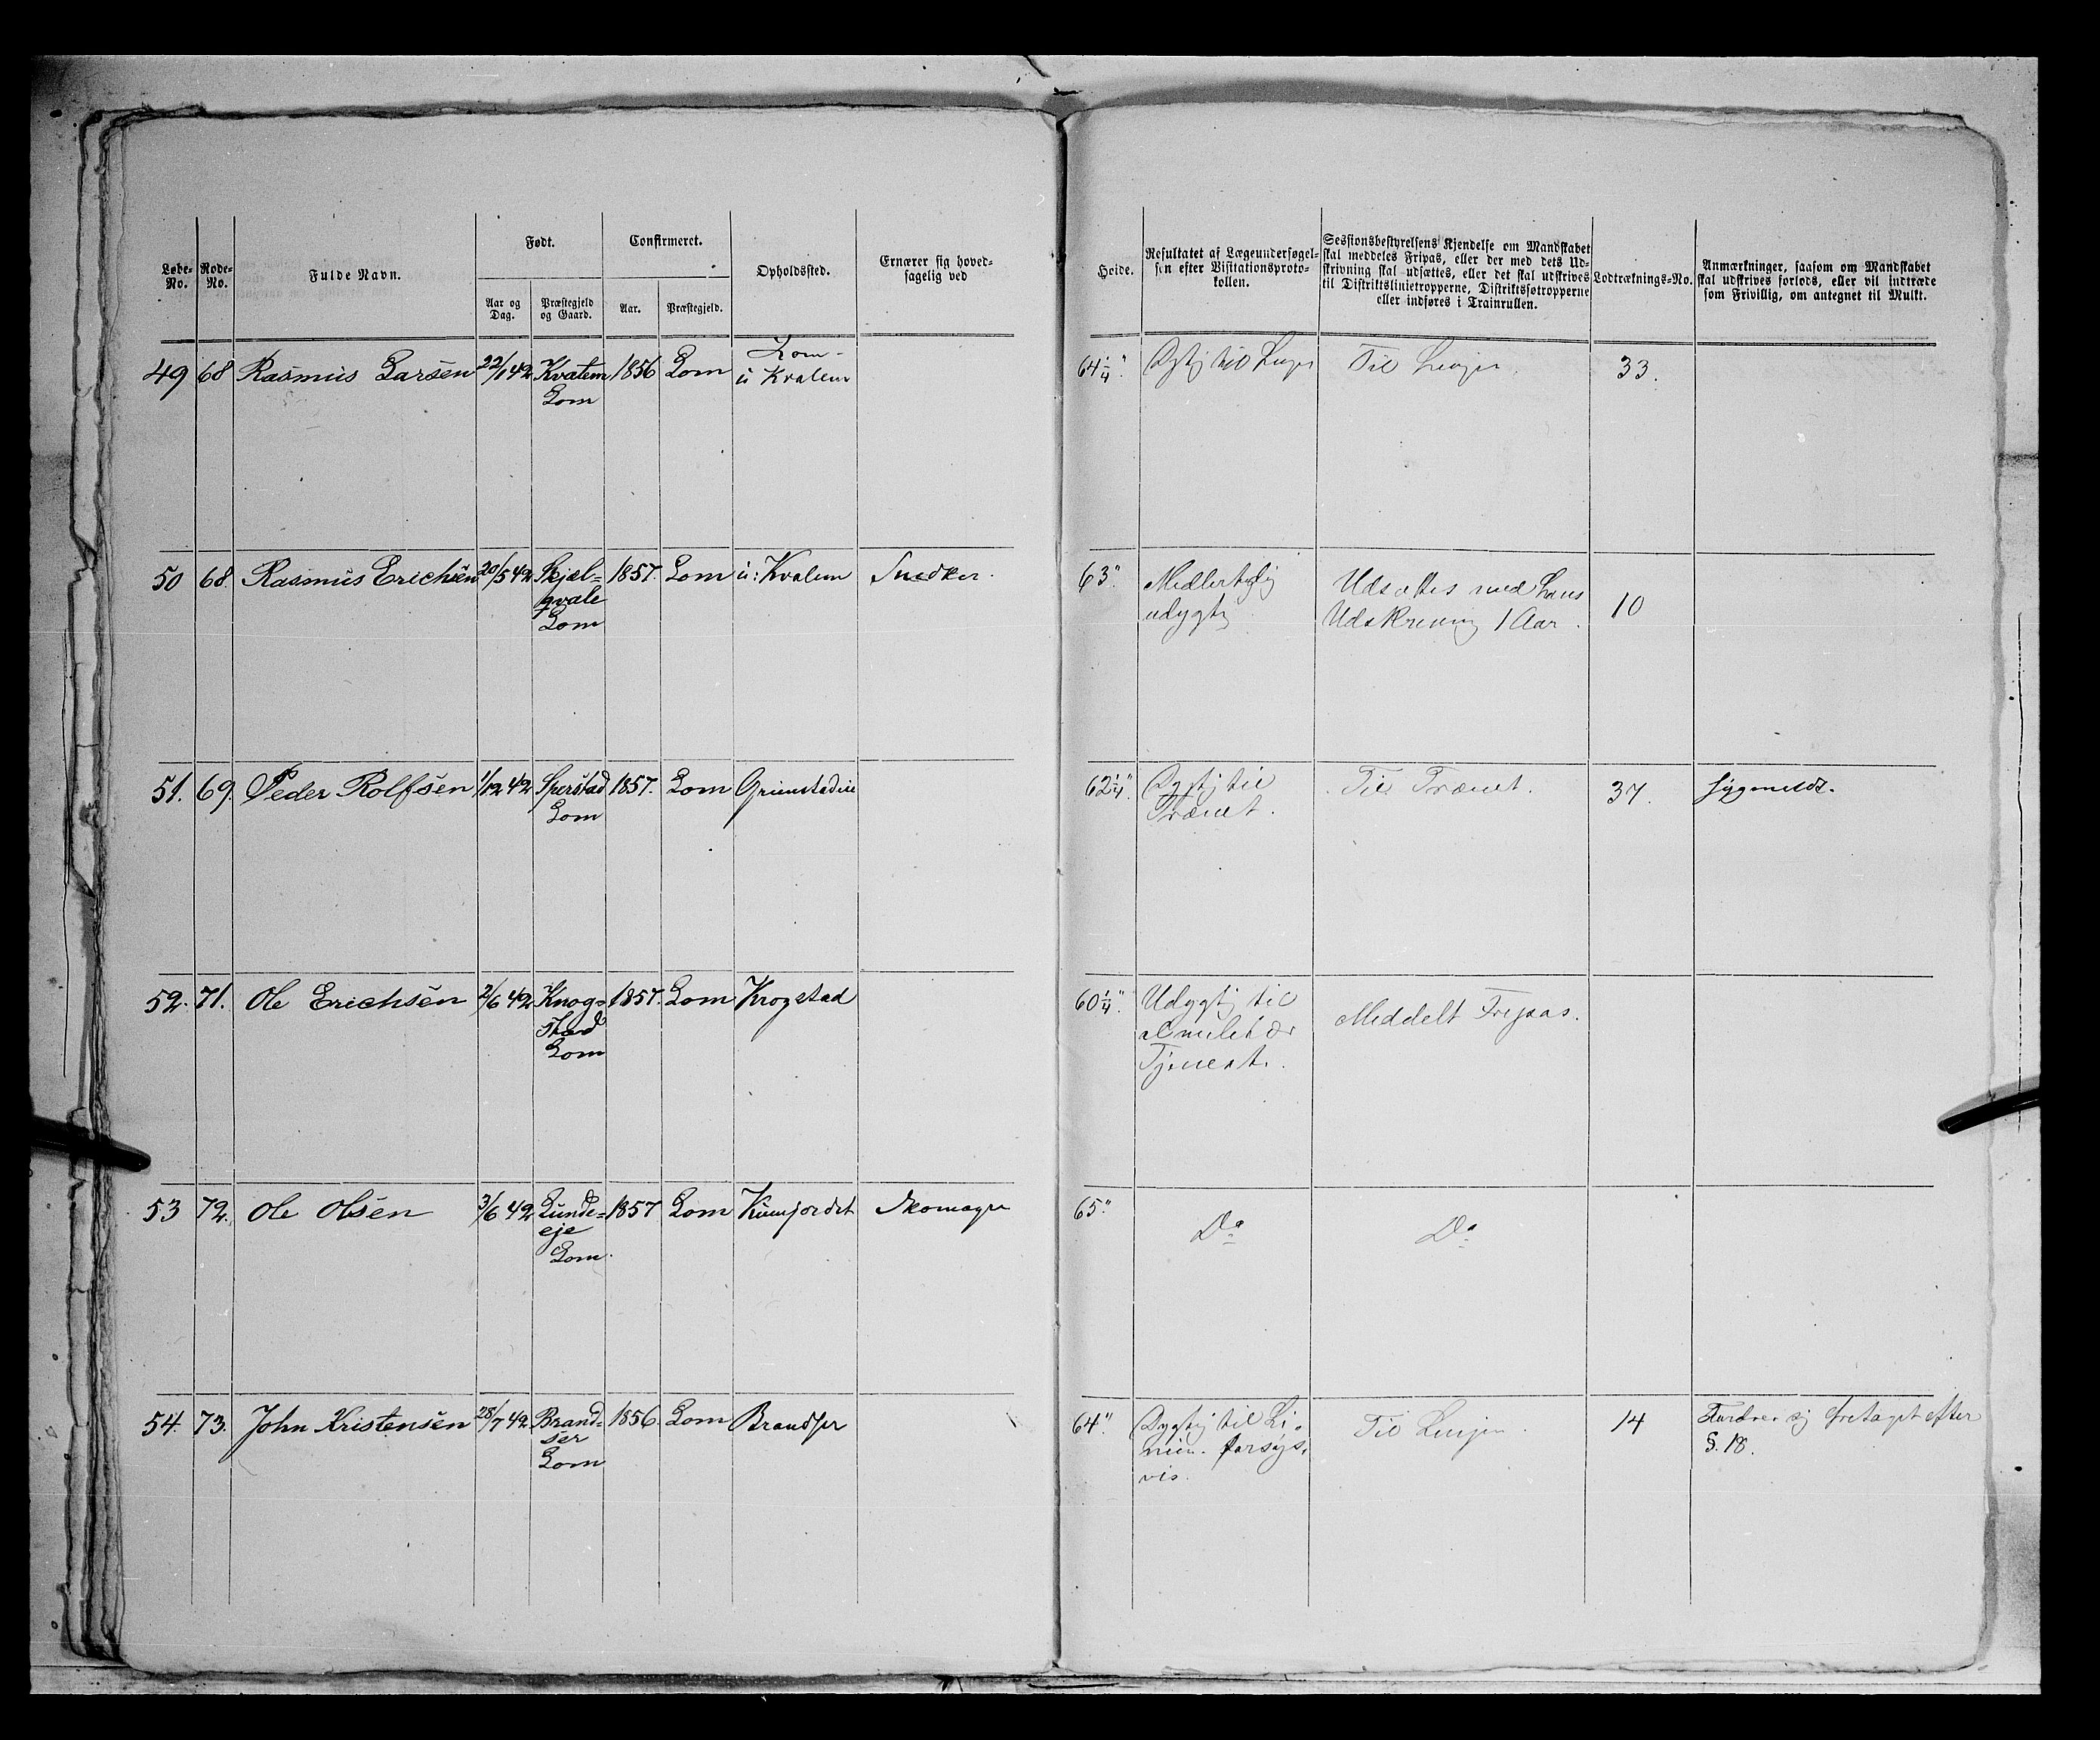 Løbe-No.
Rode-No.
Fulde Navn.
Født.
Aar og Dag.
Præstegjeld og Gaard.
Confirmeret.
Aar.
Præstegjeld.
Opholdssted.
Ernærer sig hoved-
sagelig ved
Høide.
Resultatet af Lægeundersøgel-
sen efter Visitationsproto-
kollen.
Sessionsbestyrelsens Kjendelse om Mandskabet
skal meddeles Fripas, eller der med dets Ud-
skrivning skal udsættes, eller det skal udskrives
til Distriktslinietropperne, Distriktsfotropperne
eller indføres i Trainrullen.
Lodtræknings-No.
Anmærkninger, saasom om Mandskabet
skal udskrives forlods, eller vil indtræde
som Frivillig, om antegnet til Mulkt.
49 68 Rasmus Larsen 22/1 42 Kvalem 1856 Lom Lom-
Lom u Kvalem
64 1/4" Dygtig til Linjen Til Linjen. 33.
50 68. Rasmus Erichsen 20/5 42 Skjel= 1857. Lom u: Kvalem Snedker.
qvale
Lom
63" Midlertidig Udsættes med hans 10
udygtig Udskrivning 1 Aar.
51. 69. Peder Rolfsen 1/12 42 Sperstad 1857. Lom Grimstadeie
Lom
62 1/4" Dygtig til Til Trænet. 37. Sygmeldt.
Trænet.
52. 71. Ole Erichsen 2/6 42 Krog= 1857. Lom Krogstad
stad
Lom
60 1/4" Udygtig til Meddelt Fripas.
al militær
Tjenest.
53 72. Ole Olsen 3/6 42 Lunde= 1857 Lom Skomager
eje
Lom.
65" Do Do
54. 73. John Kristensen 28/7 42. Brand= 1856. Lom Brandser
ser
Lom
64" Dygtig til Li- Til Linjen. 14 efter
nien. forsøgs- §. 18.
vis.